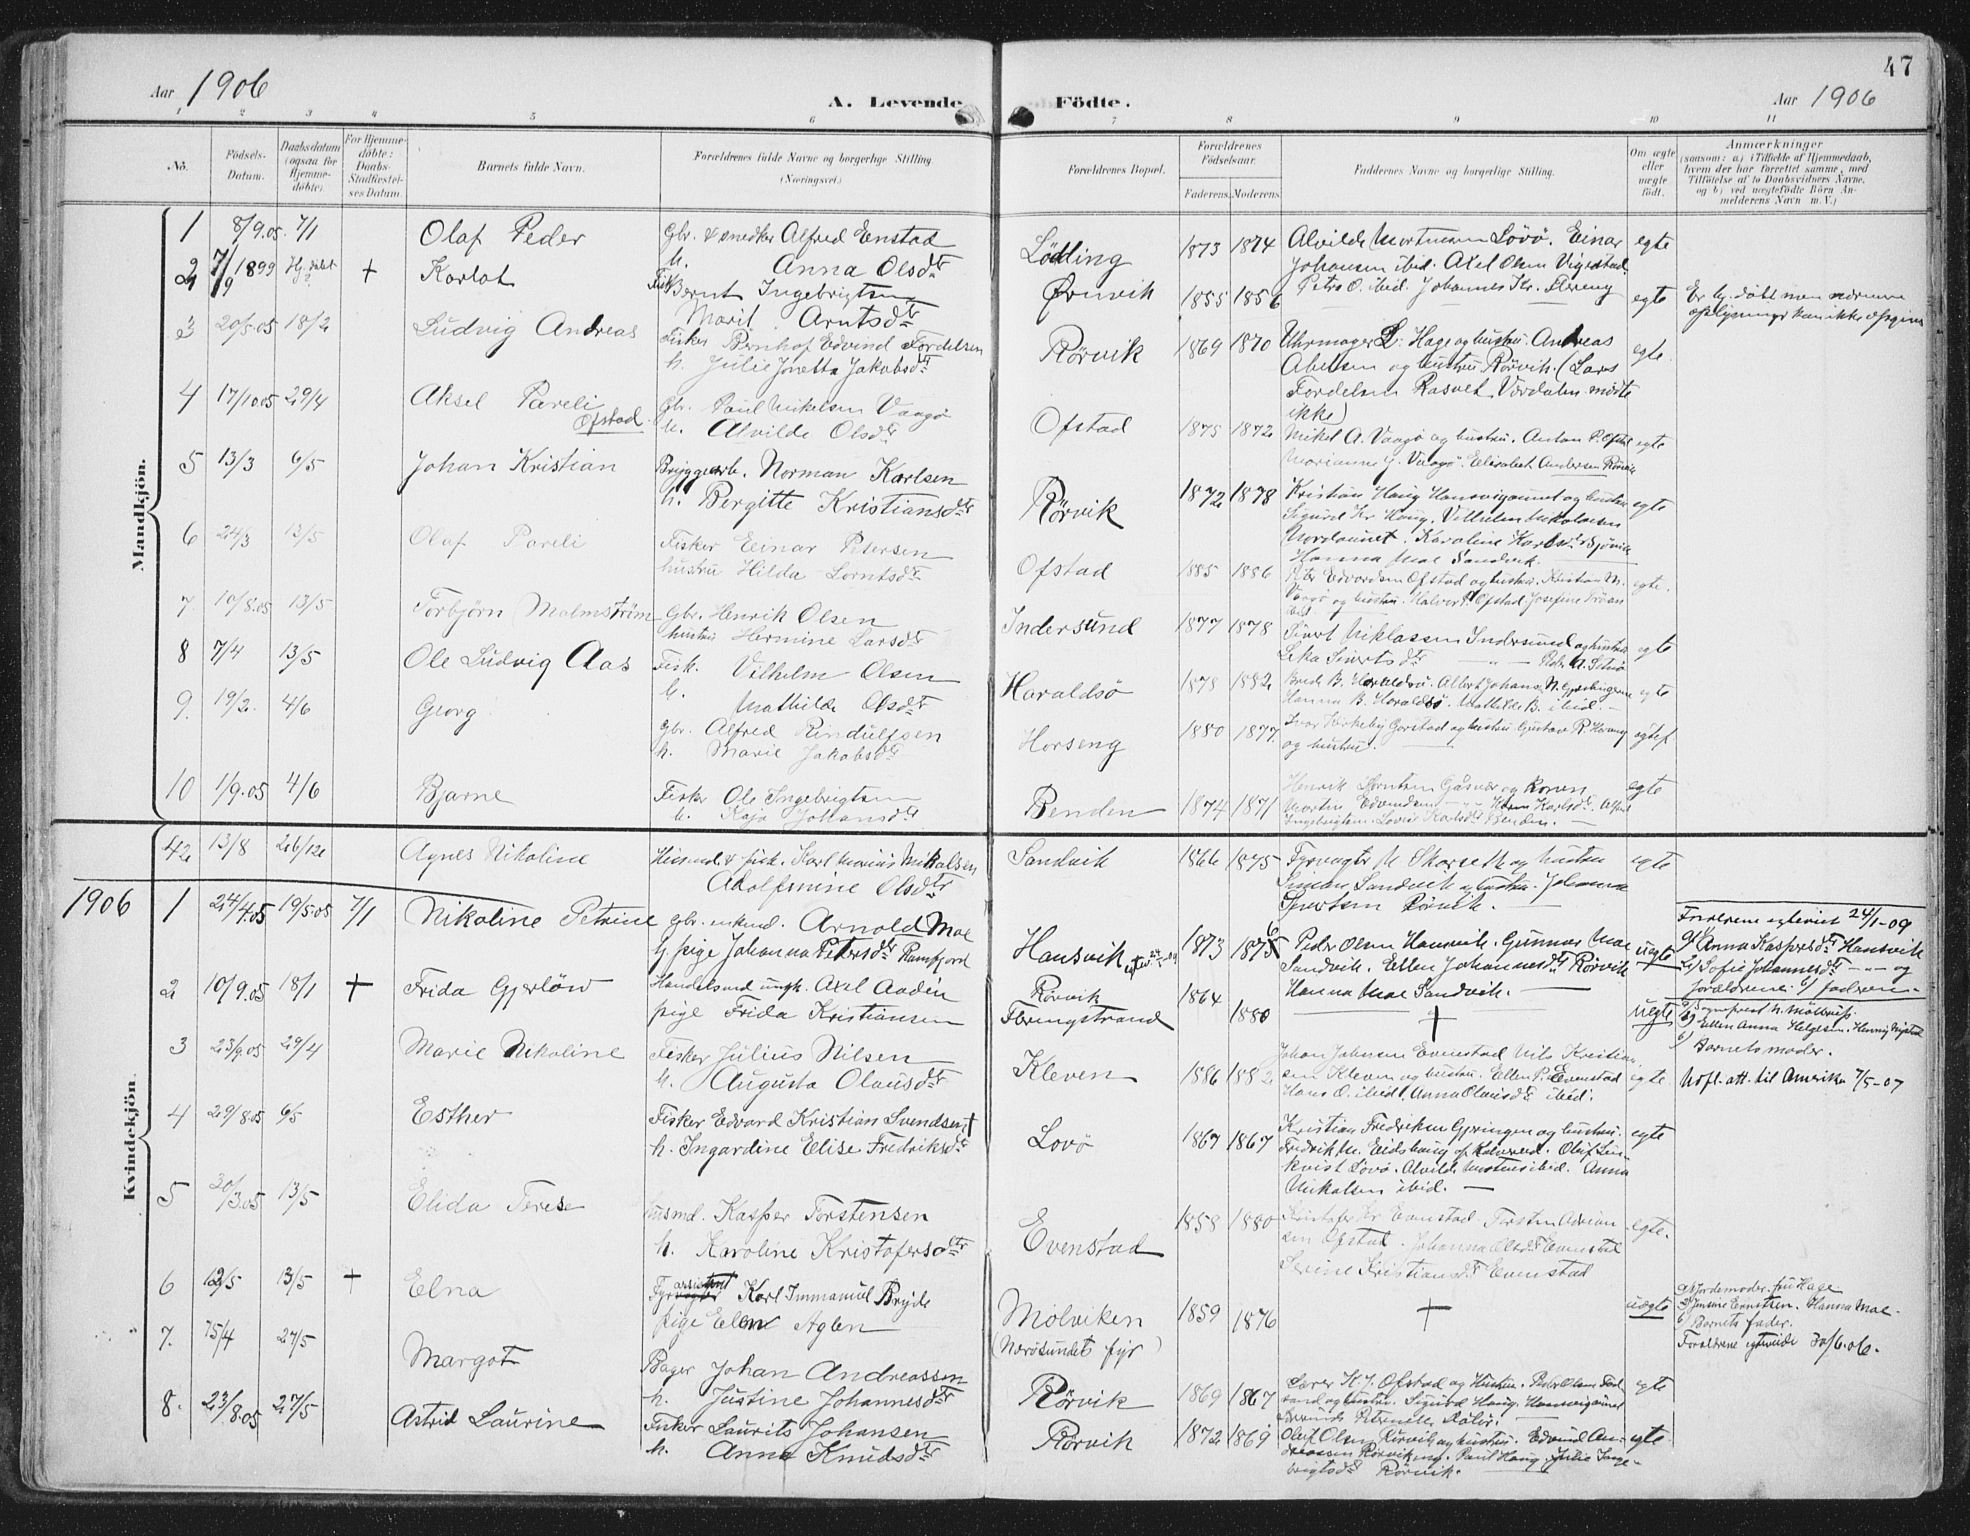 47
Aar 1906
A. Levende
Födte.
Aar 1906
1 2 3 4 5 6 7 8 9 10 11
No.
Födsels-Datum.
Daabsdatum (ogsaa for Hjemme-döbte)
For Hjemme-döbte: Daabs-Stadfæstel-ses Datum.
Barnets fulde Navn.
Forældrenes fulde Navne og borgerlige Stilling (Næringsvei.)
Forældrenes Bopæl.
Forældrenes Födselsaar.
Faderens. Moderens
Faddernes Navne og borgerlige Stilling.
Om ægte eller uægte födt.
Anmærkninger
(saasom: a) i Tilfælde af Hjemmedaab,
hvem der har forrettet samme, med
Tilföielse af to Daabsvidners Navne,
og b) ved uægtefödte Börn An-
melderens Navn m. V.)
Mandkjön.
1 8/9.05. 7/1 Olaf Peder
Gbr. & snedker Alfred Enstad
h. Anna Olsdtr
Lödding 1873 1874
Alvilde Mortensen Lövö. Einar
Johansen ibid. Axel Olsen Vigestad
Petra O. ibid. Johannes Kr. Flereng
egte
2 7/9 1899 + Karlot
Fisk. Bernt Ingebrigtsen
Marit Arntsdtr
Ørnvik 1855 1856 egte
Er hj. döbt men nærmere
oplysninger kan ikke opgives
3 20/5.05 18/2 Ludvig Andreas
Fisker Bernhof Edvind Fordelsen
h. Julie Jonetta Jakobsdtr
Rörvik 1869 1870
Uhrmager L. Hage og hustru. Andreas
Abelsen og hustru Rörvik. (Lars
Fordelsen Rasvet Værdalen mödte
ikke)
egte
4 17/10 05 29/4 Aksel Pareli
Ofstad
Gbr. Paul Mikelsen Vaagö
h. Alvilde Olsdtr
Ofstad 1875 1872
Mikel A. Vaagö og hustru. Anton P. Ofstad
Marianne J. Vaagö. Elisabet Andersen Rörvik
egte
5 13/3 6/5 Johan Kristian
Bryggearb. Norman Karlsen
h. Bergitte Kristiansdtr
Rörvik 1872 1878
Kristian Haug Hansvigaunet og hustru
Sigurd Kr Haug. Vilhelm Nikolaisen
Nordaunet. Karoline Karlsdtr Sjövik
Hanna Moe Sandvik.
egte
6 24/3 13/5 Olaf Pareli
Fisker Einar Petersen
hustru Hilda Lorntsdtr
Ofstad 1885 1886
Peter Edvardsen Ofstad og hustru. Kristian M.
Vaagö og hustru. Halvor P. Ofstad Josefine
ibid
egte.
7 10/8.05 13/5 Torbjörn Malmström
Gbr. Henrik Olsen
hustru Hermine Larsdtr
Indersund 1877 1878
Sivert Niklassen Indersund og hustru
Leka Sivertsdtr — " —
egte
8 7/4 13/5 Ole Ludvig Aas
Fisk. Vilhelm Olsen
h. Mathilde Olsdtr
Haraldsö 1878 1882
Hanna B. Haraldsö. Mathilde B. ibid. —
egte
9. 19/2. 4/6 Georg
Gbr. Alfred Rindulfsen
h. Marie Jakobsdtr
Horseng 1880 1877
Ivar Kirkeby Gjerstad og hustru Gustav R. Horseng
og hustru. —
10 1/9.05 4/6 Bjarne
Fisker Ole Ingebrigtsen
h. Kaja Johansdtr
Benden 1874 1871
Henrik Berntsen Gåsvær og konen
Martin Edvindsen
Ingebrigtsen. Lovise Karlsdtr Benden. —
egte
Kvindekjön.
42 13/8 26/12 Agnes Nikoline
Husmd. & fisk. Karl Marius Mikalsen
Adolfsmine Olsdtr
Sandvik 1866 1875
Fyrvagter M. Skarseth og hustru
Simon Sandvik og hustru. Johanna
Sivertsen Rörvik. —
egte
1906
1 24/4.05 19/5.05 7/1 Nikoline Petrine
Gbr. enkemd. Arnold Moe
pige Johanna Petersdtr Ramfjord
Hansvik 1873 1875 6
Peder Olsen Hansvik. Gunnar Moe
Sandvik. Ellen Johannesdtr Rörvik
Hanna Moe Sandvik. —
uegte
Forældrene egteviet 24/1-09
Anna Kaspersdtr Hansvik
Sofie Johannesdtr — " — og
forældrene. faderen.
2 10/9.05 18/1 + Frida Gjerlöw
Handelsmd ungk. Axel Aadén
pige Frida Kristiansen
Rörvik
1864 1880 + uegte
Sogneprest N. Möllerup
Ellen Anna Helgesen.
Barnets moder.
3 23/9.05 29/4 Marie Nikoline
Fisker Julius Nilsen
h. Augusta Olausdtr
Kleven 1886 1882
Johan Johnsen Evenstad Nils Kristian
sen Kleven og hustru. Ellen P. Evenstad
Hans O. ibid. Anna Olausdtr ibid.
egte
Udfl. att. til Amerika 7/5-07
4 29/8.05 6/5 Esther
Fisker Edvard Kristian Svendsen +
h. Ingardine Elise Fredriksdtr
Lovö 1867 1867
Kristian Fredriksen Gjeringen og hustru.
Fredrik M. Eidshaug af Kolvereid. Oluf Lin
kvist Lovö. Alvilde Mortensen ibid. Anna
Mikalsen ibid. —
egte
5 20/3.05 13/5 Elida Terese
Husmd. Kasper Torstensen
h. Karoline Kristofersdtr
Evenstad 1858 1880
Kristofer Kr Evenstad. Torsten Adrian
sen Ofstad. Johanna Olsdtr Evenstad
Serine Kristiansdtr Evenstad
egte.
6 12/5 13/5 + Elna
Fyrassistent Karl Immanuel Bryde
pige Elen Aglen
Molviken
(Nærösundets fyr)
1859 1876 + uægte
Jordemoder fru Hage
Jensine Ernstsen. Hanna Moe.
Barnets fader.
Forældrene egteviede 30/6.06.
7. 15/4 27/5 Margot
Bager Johan Andreassen
h. Justine Johannesdtr
Rörvik 1869 1867
Lærer K. J. Ofstad og Hustru.
og hustru. Sigurd Haug. Hansvigaunet
egte
8. 23/8.05 27/5 Astrid Laurine
Fisker Laurits Johansen
h. Anna Knudsdtr
Rörvik 1872 1869
Olaf Olsen Rörvik og hustru. Edvind An-
dreassen Rörvik. Paul Haug. Julie Inge-
brigtsdtr Rörvik.
egte